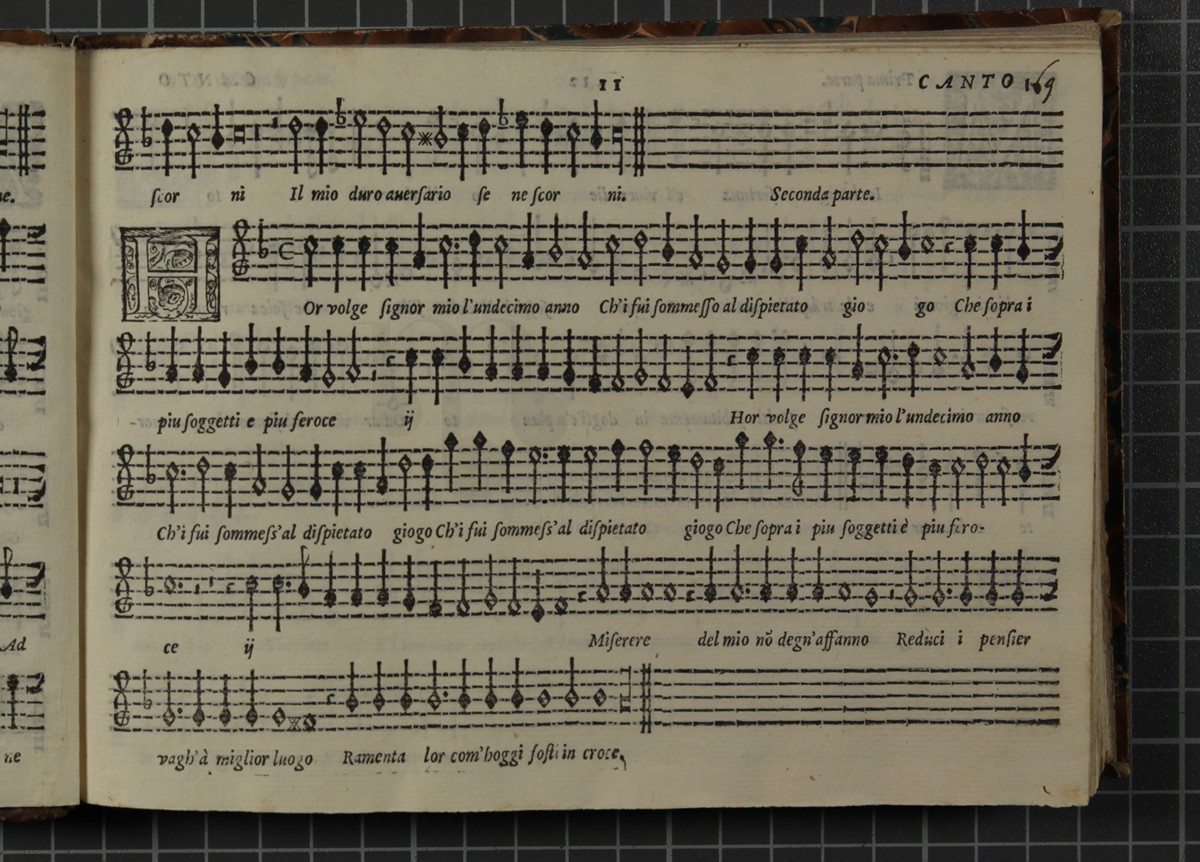 11 CANTO 169
scor ni Il mio duro auersario se ne scor ni. Seconda parte.
HOr volge signor mio l'undecimo anno Ch'i fui sommesso al dispietato gio go Che sopra i
piu soggetti e piu feroce ij Hor volge signor mio l'undecimo anno
Ch'i fui sommess'al dispietato giogo Ch'i fui sommess'al dispietato giogo Che sopra i piu soggetti è piu fero-
Ad
ce ij Miserere del mio nõ degn'affanno Reduci i pensier
ne
vagh'à miglior luogo Ramenta lor com'hoggi fosti in croce,